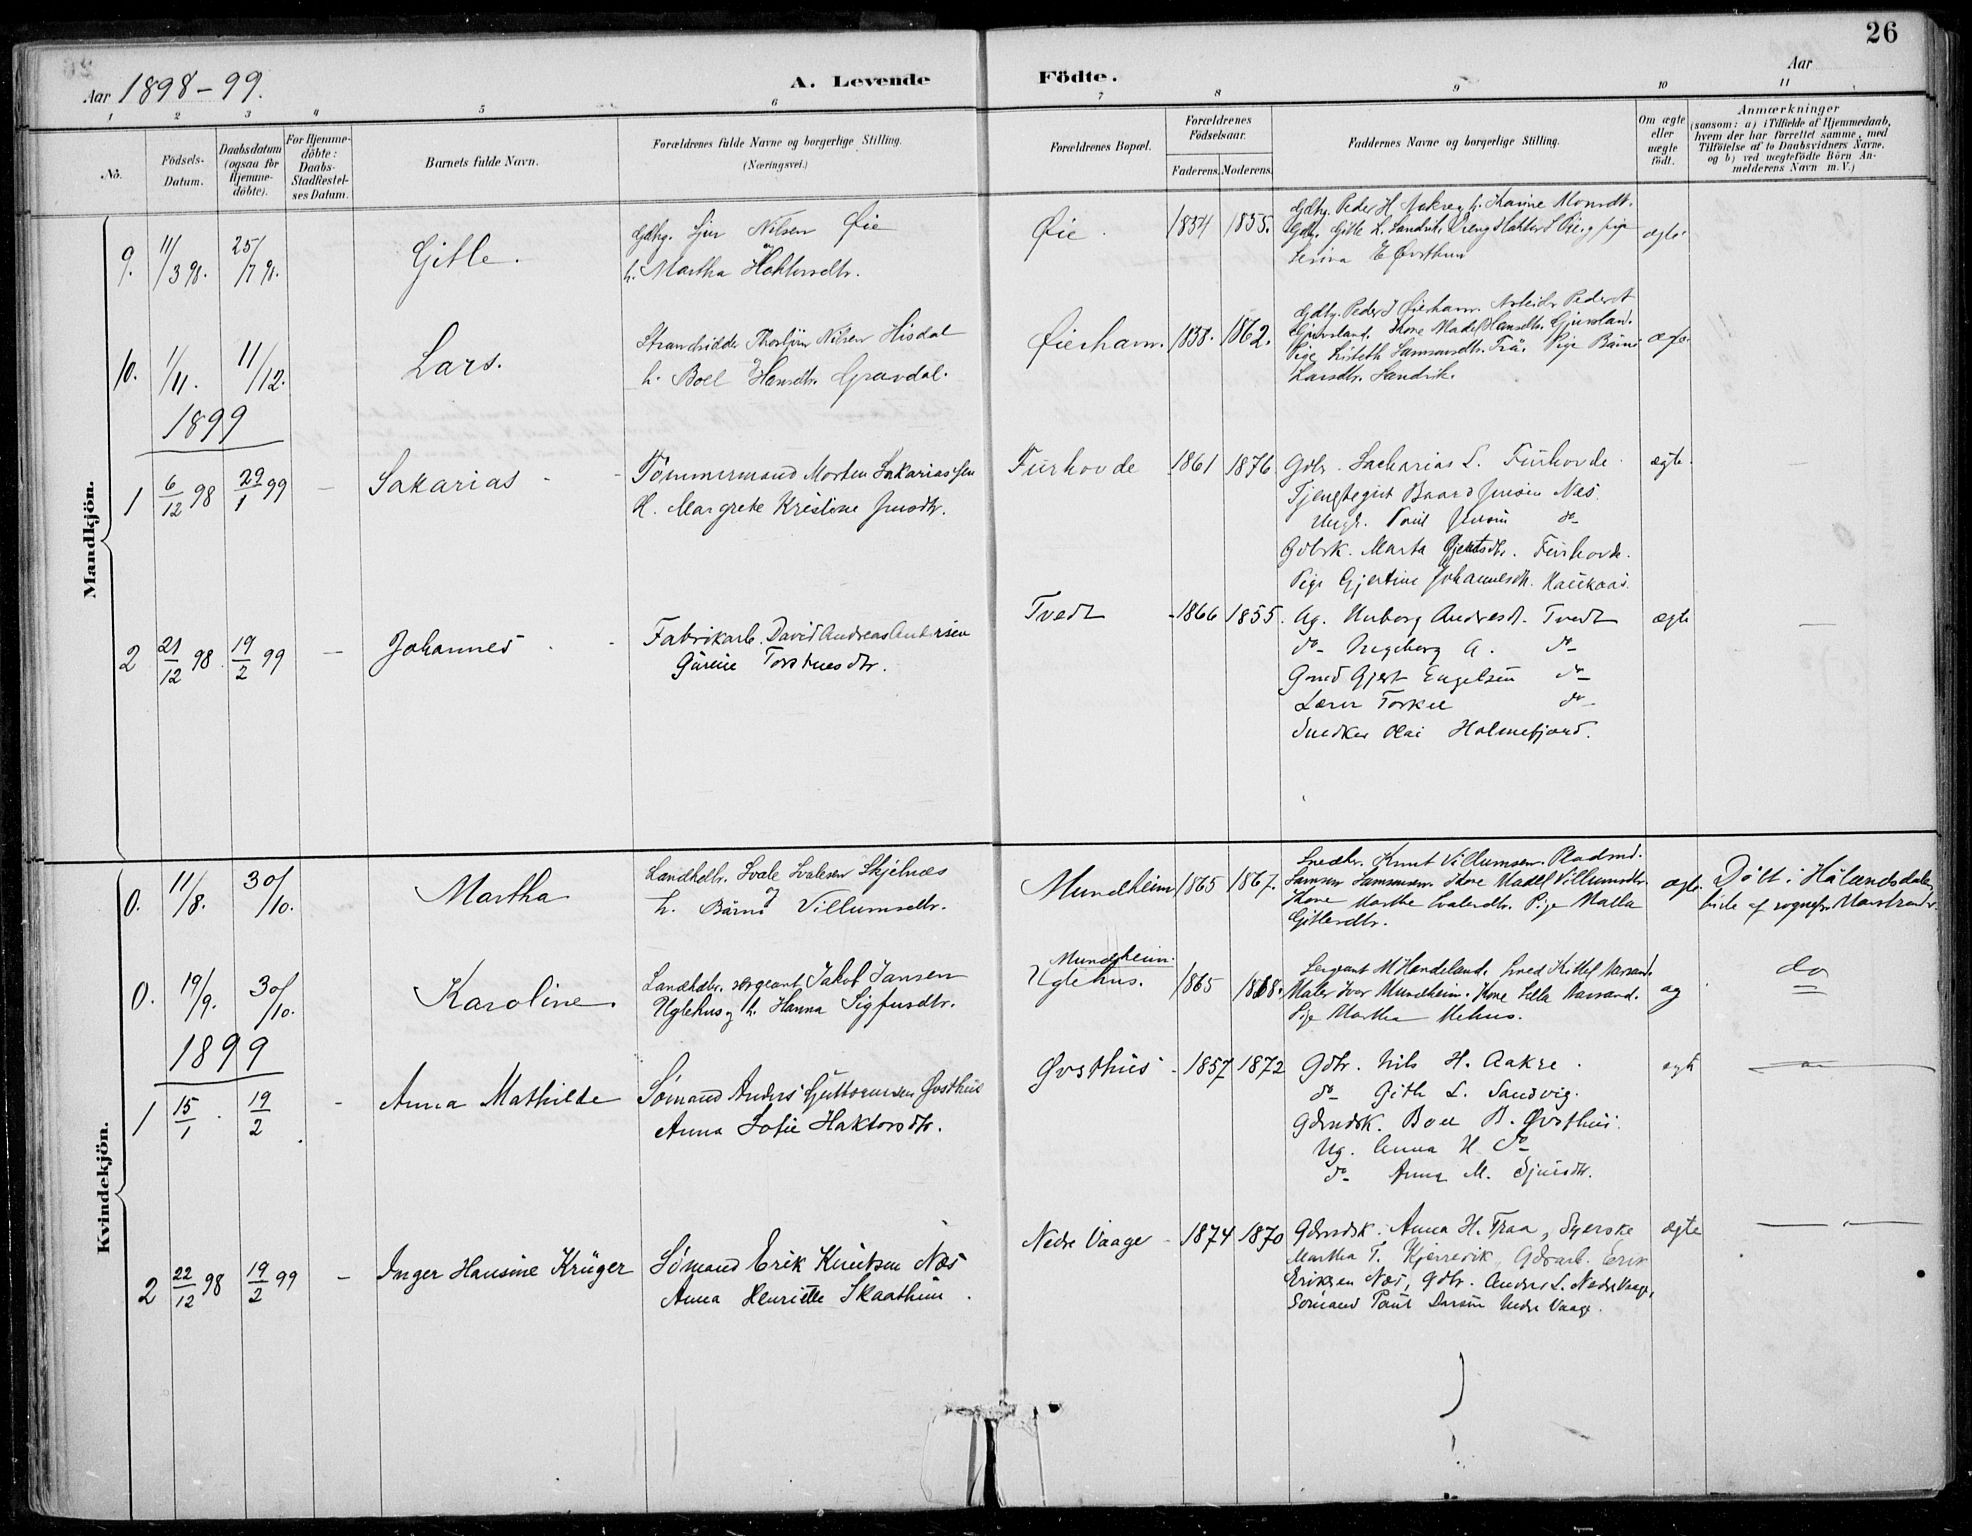 26
Aar 1898-99.
A. Levende Födte.
Aar
1 2 3 4 5 6 7 8 9 10 11
No.
Födsels-Datum.
Daabsdatum (ogsaa for Hjemme-döbte).
For Hjemme-döbte: Daabs-Stadfæstel-ses Datum.
Barnets fulde Navn.
Forældrenes fulde Navne og borgerlige Stilling. (Næringsvei.)
Forældrenes Bopæl.
Forældrenes Födselsaar.
Faderens. Moderens.
Faddernes Navne og borgerlige Stilling.
Om ægte eller uægte födt.
Anmærkninger (saasom: a) i Tilfælde af Hjemmedaab, hvem der har forrettet samme, med Tilföielse af to Daabsvidners Navne, og b) ved uegtefödte Börn An-melderens Navn m. V.)
Mandkjön.
9. 11/3 98. 25/7 98. Gitle. Gdbg. Sjur Nilsen Øie
og
h. Martha Haktorsdtr.
Øie. 1834 1855.
Gdbg. Peder H Aakre, h. Karine Monsdt.
Gdbg. Gitle L. Sandvik, Dreng Haktor S Øie og pige
E Øvsthus
ægte
10. 1/11. 11/12. Lars.
Strandsidder Thorbjørn Nilsen Hisdal
og
h. Boel Hansdtr. Gravdal.
Øierhavn. 1838. 1862.
Gdbg. Peder J Øierhavn. Arbeider Peder A
Gjuvsland. Kone Madel Hansdtr. Gjuvsland.
Pige Lisbeth Samsonsdtr. Trå. Pige Børni
Larsdtr. Sandvik.
ægte
1899
1 6/12 98 29/1 99 - Sakarias -
Tømmermand Morten Sakariassen
H. Margrete Kristine Jensdtr.
Furhovde 1861 1876
Gdbr. Sacharias L. Furhovde.
Tjenstegut Baard Jensen Næs.
Ungk. Paul Jensen do
Gdbrk. Marta Gjertsdtr. Furhovde.
Pige Gjertine Johannesdt. Haukaas.
ægte. -
2 21/12 98 19/2 99 - Johannes
Fabrikarb. David Andreas Andersen
Gurine Torstensdtr.
Tvedt - 1866 1855.
Ug. Anborg Andersdt. Tvedt
do Ingeborg A. do
Gmd Gjert Engelsen do
Lærer Torkel do
Snedker Olai Holmefjord.
ægte -
Kvindekjön.
0. 11/8. 30/10. Martha
Landhdlr. Svale Svalesen Skjelnæs
og
h. Børni Villumsdtr.
Mundheim 1865 1867.
Snedkr. Knut Villumsen. Pladsmd.
Samson Samsonsen. Kone Madel Villumsdtr.
Kone Marthe Svalesdtr. Pige Malla
Gitlesdtr.
ægte. Døbt i Hålandsdalen
kirke af sognepr. Marstrander.
0. 19/9. 30/10. Karoline.
Landhdlr. sergeant Jakob Jansen
Uglehus og h. Hanna Sigfusdtr.
Mundheim.
Uglehus. 1865 1868.
Sergeant M Handeland. Smed Kittel
Maler Iver Mundheim. Kone Lilla
Pige Martha Mehus.
æg do
1899
1 15/1 19/2 - Anna Mathilde
Sømand Anders Guttormsen Øvsthus
Anna Sofie Haktorsdtr.
Øvsthus - 1857 1872
Gdbr. Nils H. Aakre.
do Gitle L. Sandvig.
Gdmdsk. Boel B. Øvsthus.
Ug. Anna H. do
do Anna M. Sjursdtr.
egte
2 22/12 98 19/2 99 - Inger Hansine Krüger
Sømand Erik Knutsen Næs
Anna Henriette Skaathun.
Nedre Vaage - 1874 1870
Gdmdsk. Anna H. Traa, Syerske
Martha T. Kjærrevik, Gdbrarb. Erik
Eriksen Næs, Gdbr. Anders L. Nedre Vaage,
Sømand Paul Larsen Nedre Vaage.
ægte